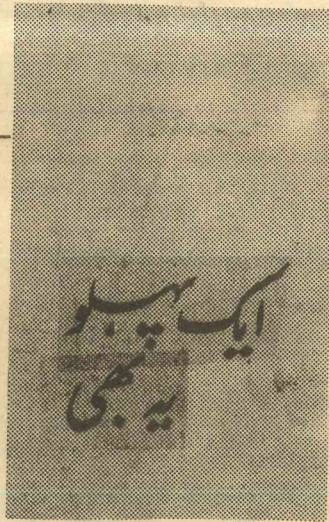 ایک پہلو
یہ بھی